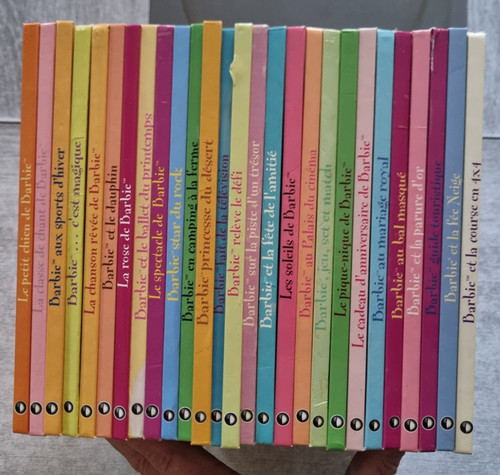 Le petit chien de Barbie™
La classe de chant de Barbie™
Barbie™ aux sports d'hiver
Barbie™... c'est magique!
La chanson rêvée de Barbie™
Barbie™ et le dauphin
La rose de Barbie™
Barbie™ et le ballet du printemps
Le spectacle de Barbie™
Barbie™ star du rock
Barbie™ en camping à la ferme
Barbie™ princesse du désert
Barbie™ fait de la télévision
Barbie™ relève le défi
Barbie™ sur la piste d'un trésor
Barbie™ et la fête de l'amitié
Les soleils de Barbie™
Barbie™ au Palais du cinéma
Barbie™, jeu, set et match
Le pique-nique de Barbie™
Le cadeau d'anniversaire de Barbie™
Barbie™ au mariage royal
Barbie™ au bal masqué
Barbie™ et la parure d'or
Barbie™ guide touristique
Barbie™ et la fée Neige
Barbie™ et la course en 4x4